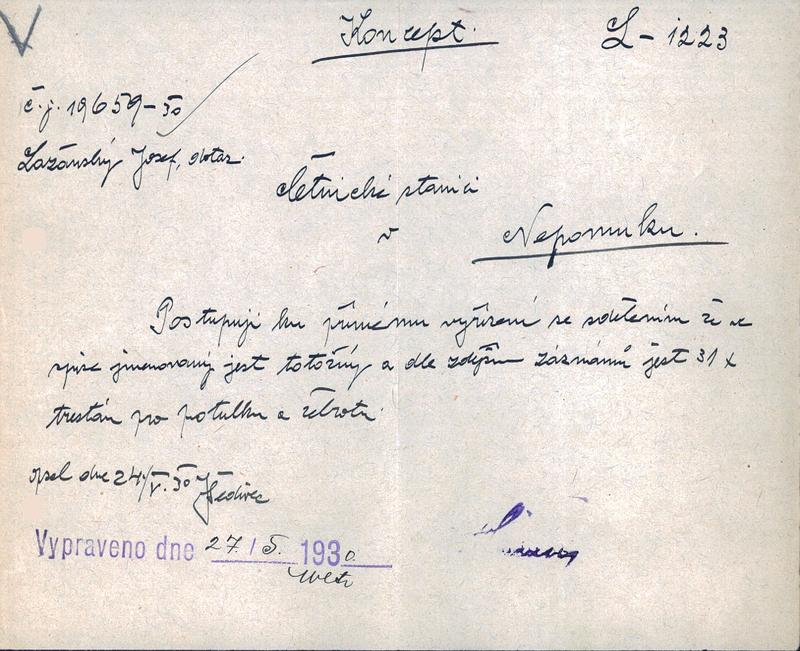 Koncept.
L - 1223
č.j. 19659-30
Lažánský Josef, dotaz.
četnické stanici
v
Nepomuku.
Postupuji ku přímému vyřízení se sdělením že v
spise jmenovaný jest totožný a dle zdejším záznamů jest 31 x
trestán pro potulku a žebrotu.
opsal dne 24/V. 30 Šedivec
Vypraveno dne 27/5. 1930.